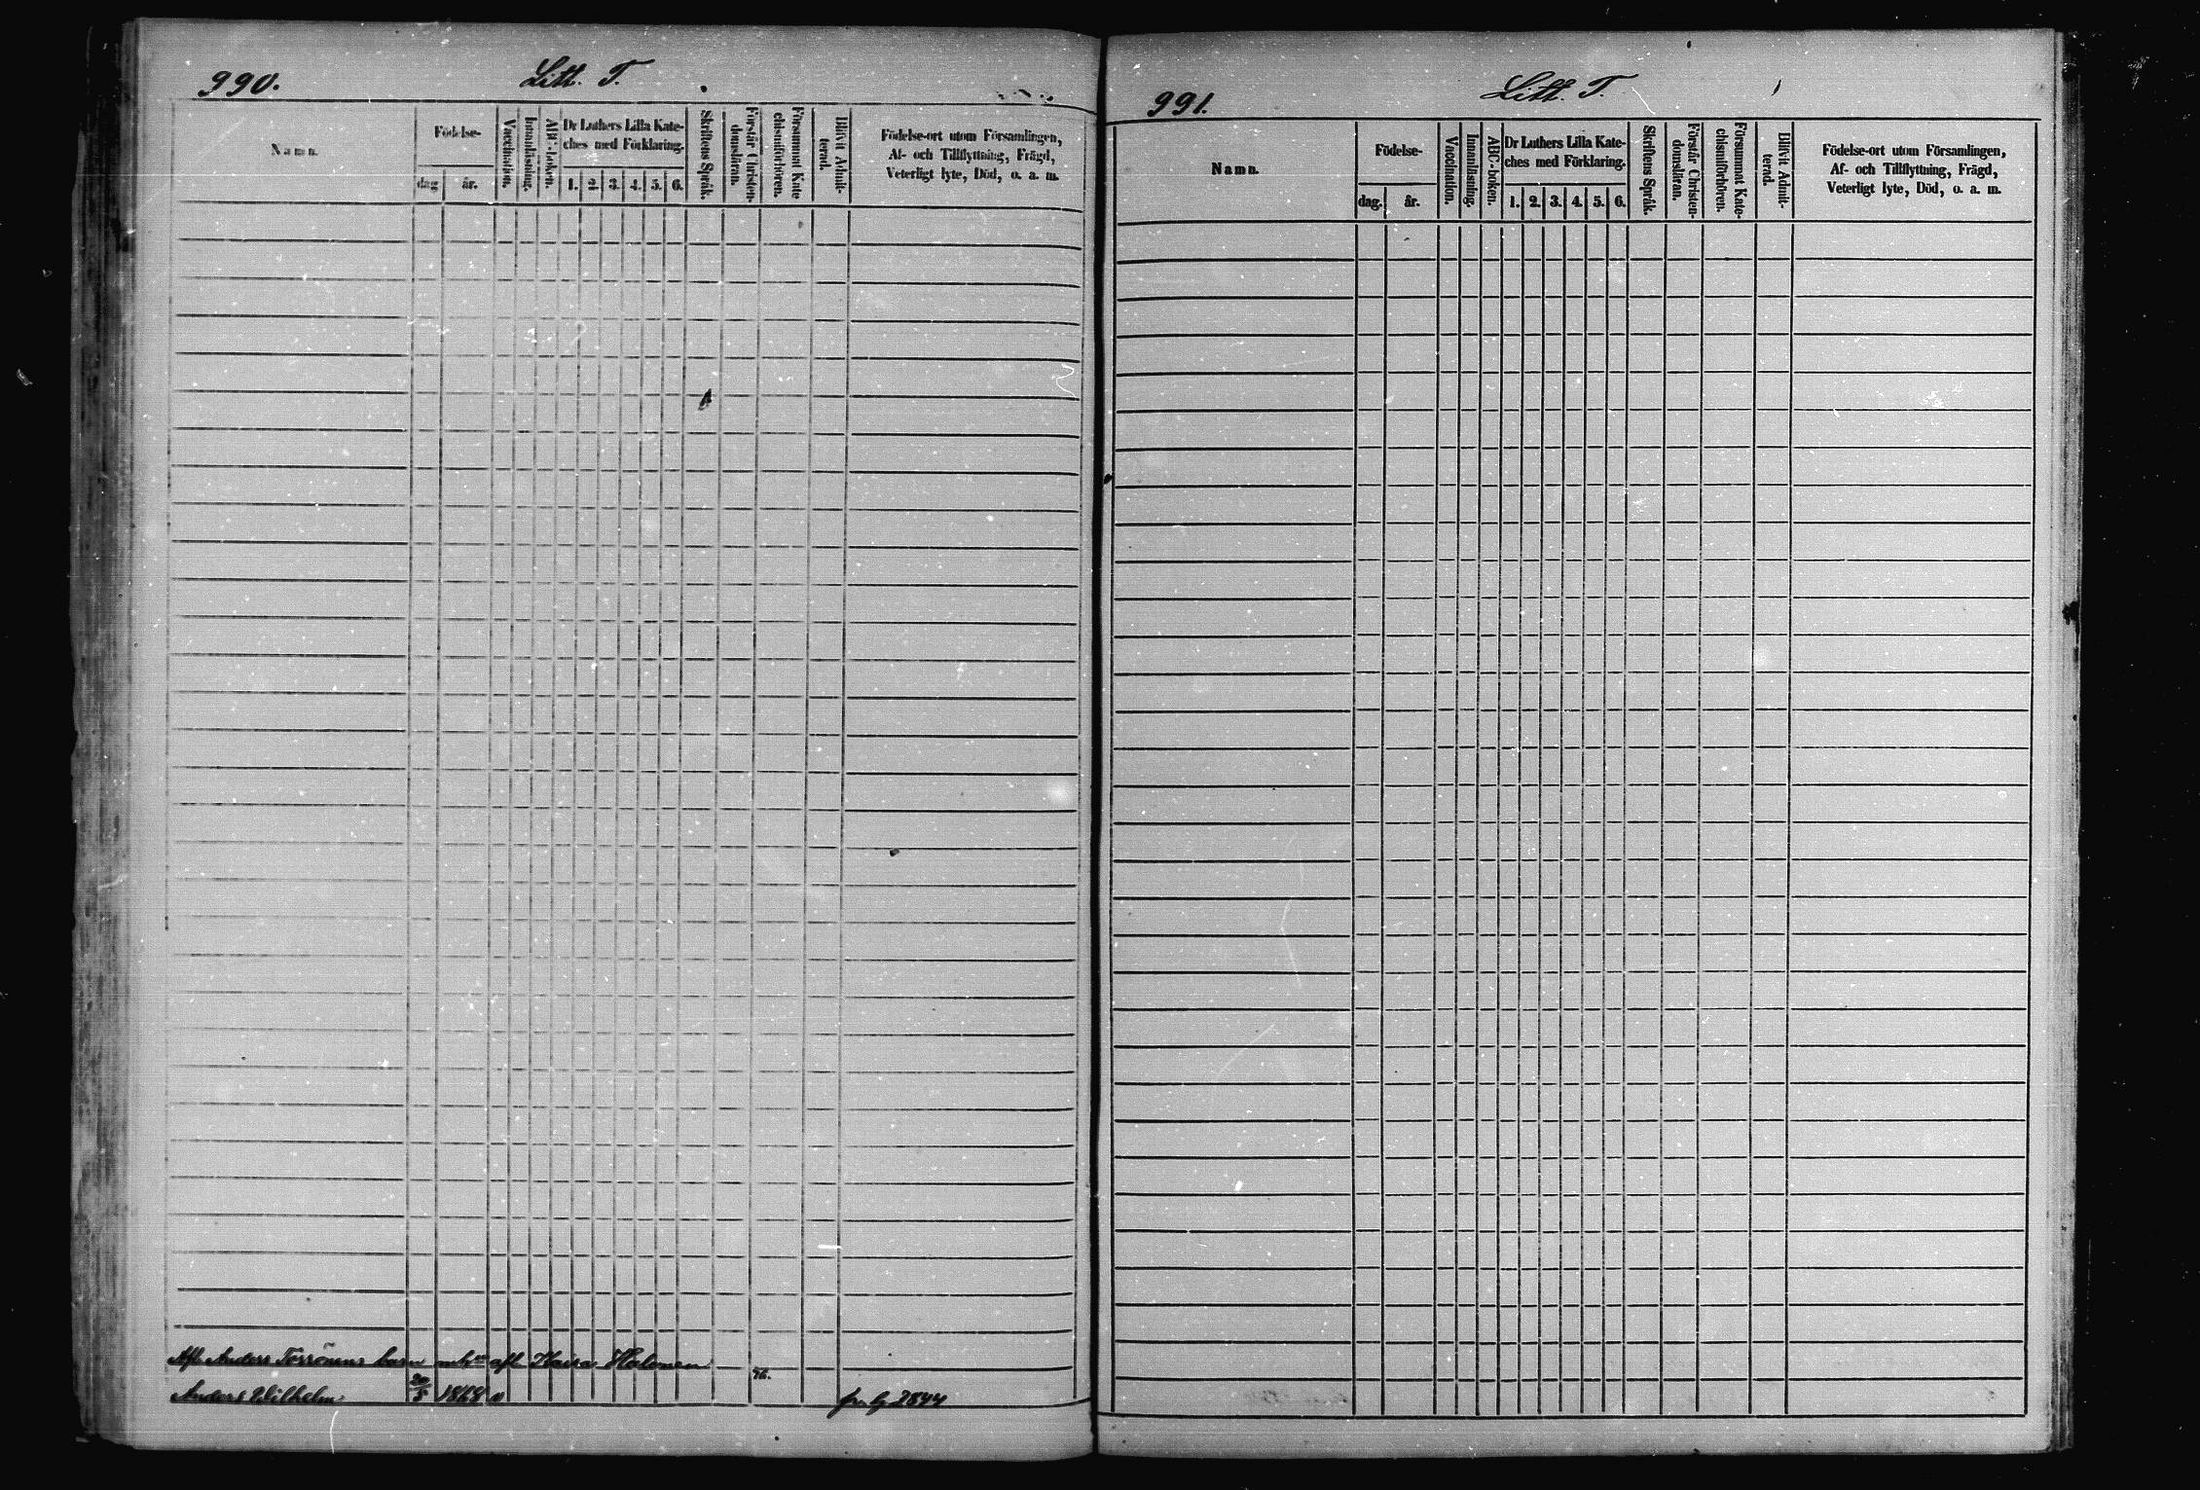 990.
Litt. T.
Namn.
Födelse-
dag
år.
Vaccination.
Innanläsning.
ABC-boken.
Dr Luthers Lilla Kate-
ches med Förklaring.
1. 2. 3. 4. 5. 6.
Skriftens Språk.
Förstår Christen-
domsläran.
Försummat Kate
chismiförhören.
Blifvit Admit-
terad.
Födelse-ort utom Församlingen,
Af- och Tillflyttning, Frägd,
Veterligt lyte, Död, o. a. m.
Afl. Anders Torrönens barn m. h. afl. Kaisa Halonen
Anders Wilhelm 20/5 1868 v 76. 2844
991.
Litt. T.
Namn.
Födelse-
dag.
år.
Vaccination.
Innanläsning.
ABC-boken.
Dr Luthers Lilla Kate-
ches med Förklaring.
1. 2. 3. 4. 5. 6.
Skriftens Språk.
Förstår Christen-
domsläran.
Försummat Kate-
chismiförhören.
Blifvit Admit-
terad.
Födelse-ort utom Församlingen,
Af- och Tillflyttning, Frägd,
Veterligt lyte, Död, o. a. m.